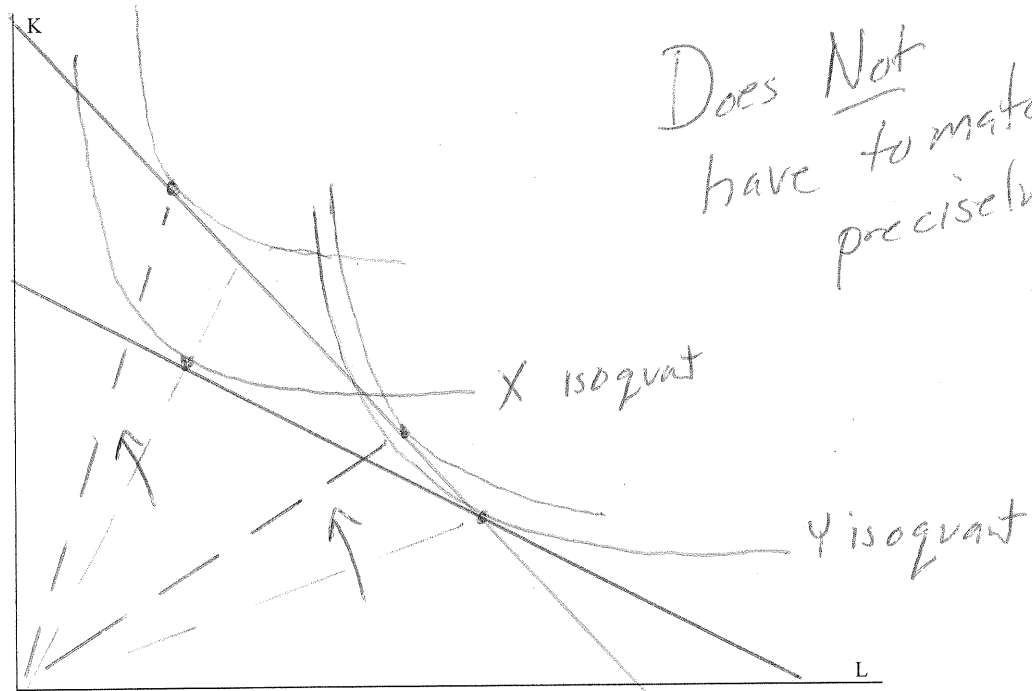 K
Does Not
have to
precisely
X isoquant
Y isoquant
L